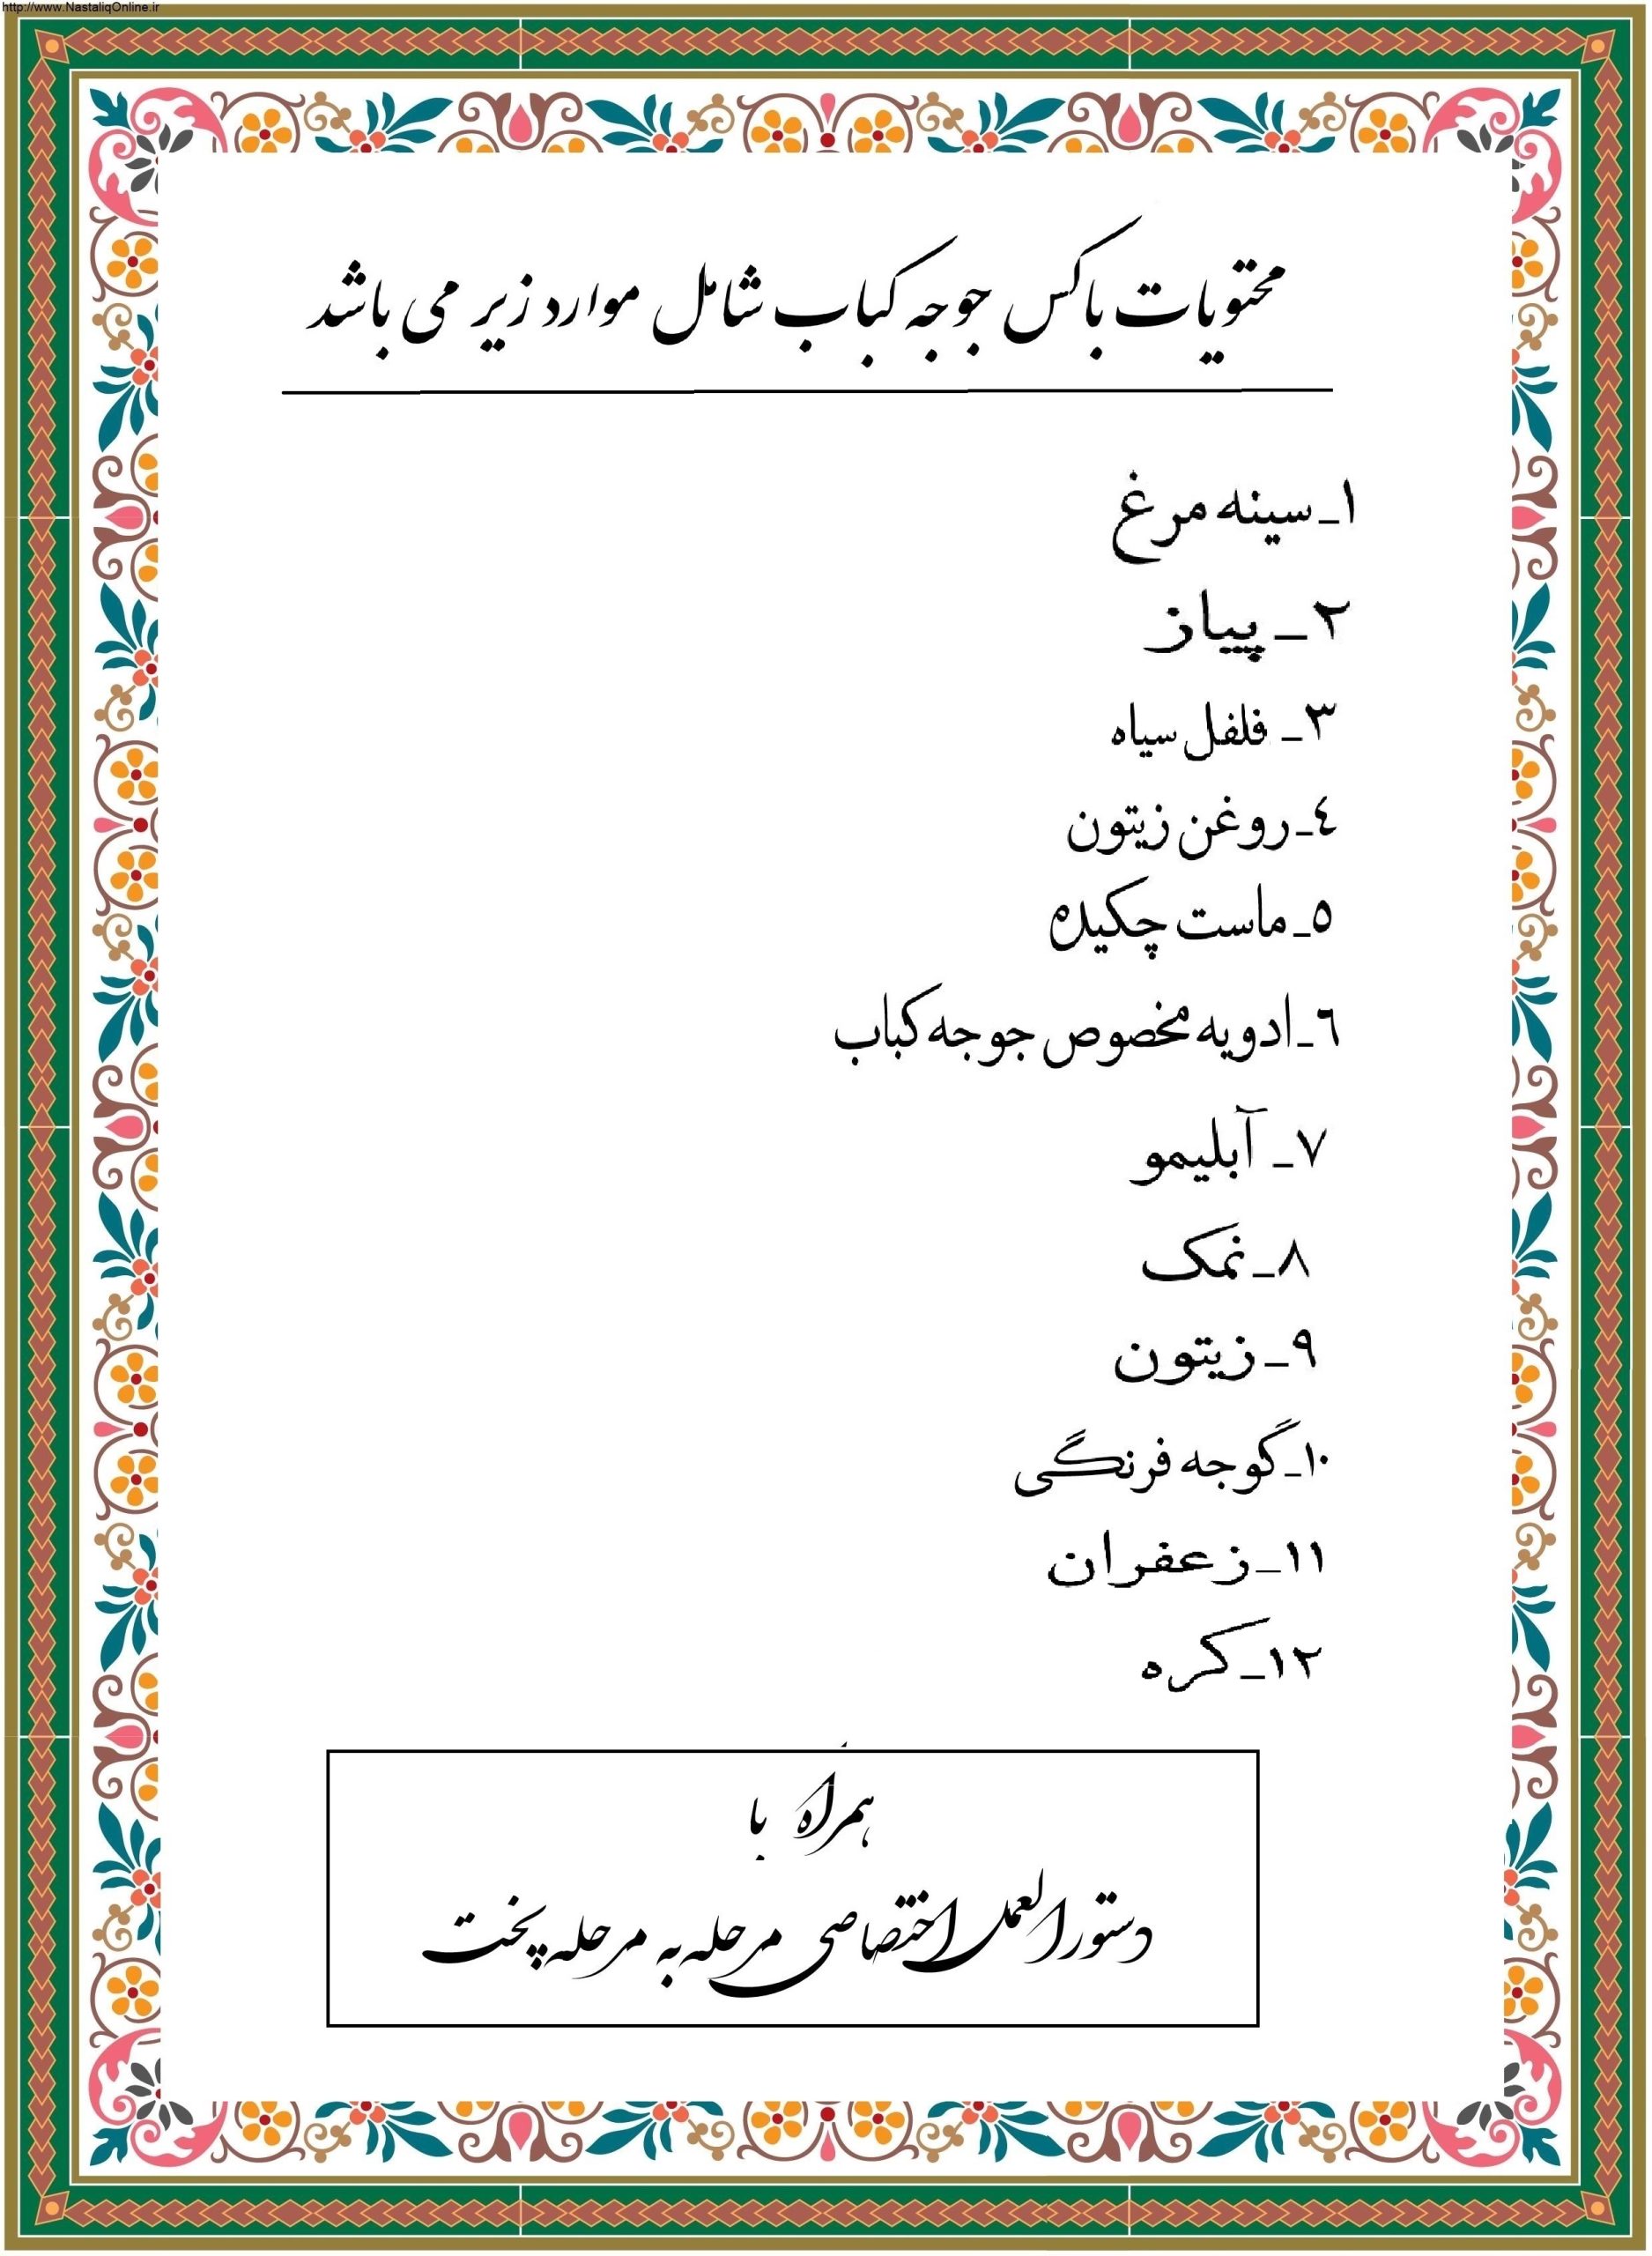 http://www.NastaliqOnline.ir
محتویات باکس جوجه کباب شامل موارد زیر می باشد
١ـ سینه مرغ
٢ـ پیاز
٣ـ فلفل سیاه
٤ـ روغن زیتون
٥ـ ماست چکیده
٦ـ ادویه مخصوص جوجه کباب
٧ـ آبلیمو
٨ـ نمک
٩ـ زیتون
١٠ـ گوجه فرنگی
١١ـ زعفران
١٢ـ کره
همراه با
دستورالعمل اختصاصی مرحله به مرحله پخت